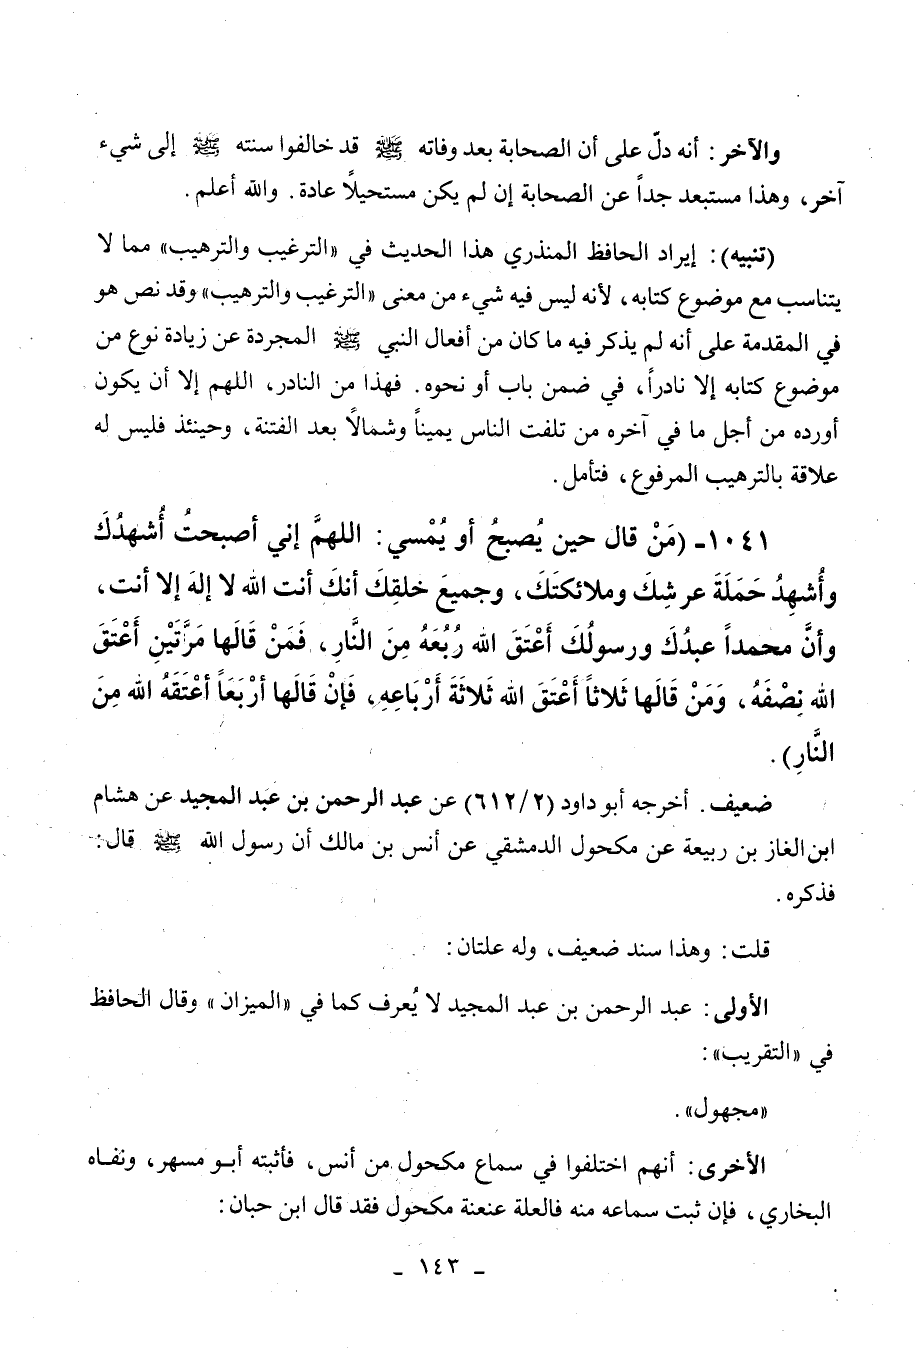 والآخر : أنه دلّ على أن الصحابة بعد وفاته ﷺ قد خالفوا سنته ﷺ إلى شيء
آخر ، وهذا مستبعد جداً عن الصحابة إن لم يكن مستحيلاً عادة . والله أعلم .
(تنبيه) : إيراد الحافظ المنذري هذا الحديث في «الترغيب والترهيب» مما لا
يتناسب مع موضوع كتابه ، لأنه ليس فيه شيء من معنى «الترغيب والترهيب» وقد نص هو
في المقدمة على أنه لم يذكر فيه ما كان من أفعال النبي ﷺ المجردة عن زيادة نوع من
موضوع كتابه إلا نادراً ، في ضمن باب أو نحوه . فهذا من النادر ، اللهم إلا أن يكون
أورده من أجل ما في آخره من تلفت الناس يميناً وشمالاً بعد الفتنة ، وحينئذ فليس له
علاقة بالترهيب المرفوع ، فتأمل .
١٠٤١ـ (مَنْ قال حين يُصبحُ أو يُمْسي : اللهمَّ إني أصبحتُ أُشهدُكَ
وأُشهِدُ حَمَلَةَ عرشِكَ وملائكتَكَ ، وجميعَ خلقِكَ أنكَ أنت الله لا إلهَ إلا أنت ،
وأنَّ محمداً عبدُكَ ورسولُكَ أَعْتَقَ الله رُبُعَهُ مِنَ النَّارِ ، فَمَنْ قَالَها مَرَّتَيْنِ أَعْتَقَ
الله نِصْفَهُ ، وَمَنْ قَالَها ثَلاثاً أَعْتَقَ الله ثَلاثَةَ أَرْبَاعِهِ ، فَإِنْ قَالَها أرْبَعَاً أعْتَقَهُ الله مِنَ
النَّارِ) .
ضعيف . أخرجه أبو داود (٦١٢/٢) عن عبد الرحمن بن عبد المجيد عن هشام
ابن الغاز بن ربيعة عن مكحول الدمشقي عن أنس بن مالك أن رسول الله ﷺ قال :
فذكره .
قلت : وهذا سند ضعيف ، وله علتان :
الأولى : عبد الرحمن بن عبد المجيد لا يُعرف كما في «الميزان» وقال الحافظ
في «التقريب» :
«مجهول» .
الأخرى : أنهم اختلفوا في سماع مكحول من أنس ، فأثبته أبـو مسهر ، ونفـاه
البخاري ، فإن ثبت سماعه منه فالعلة عنعنة مكحول فقد قال ابن حبان :
ـ ١٤٣ ـ